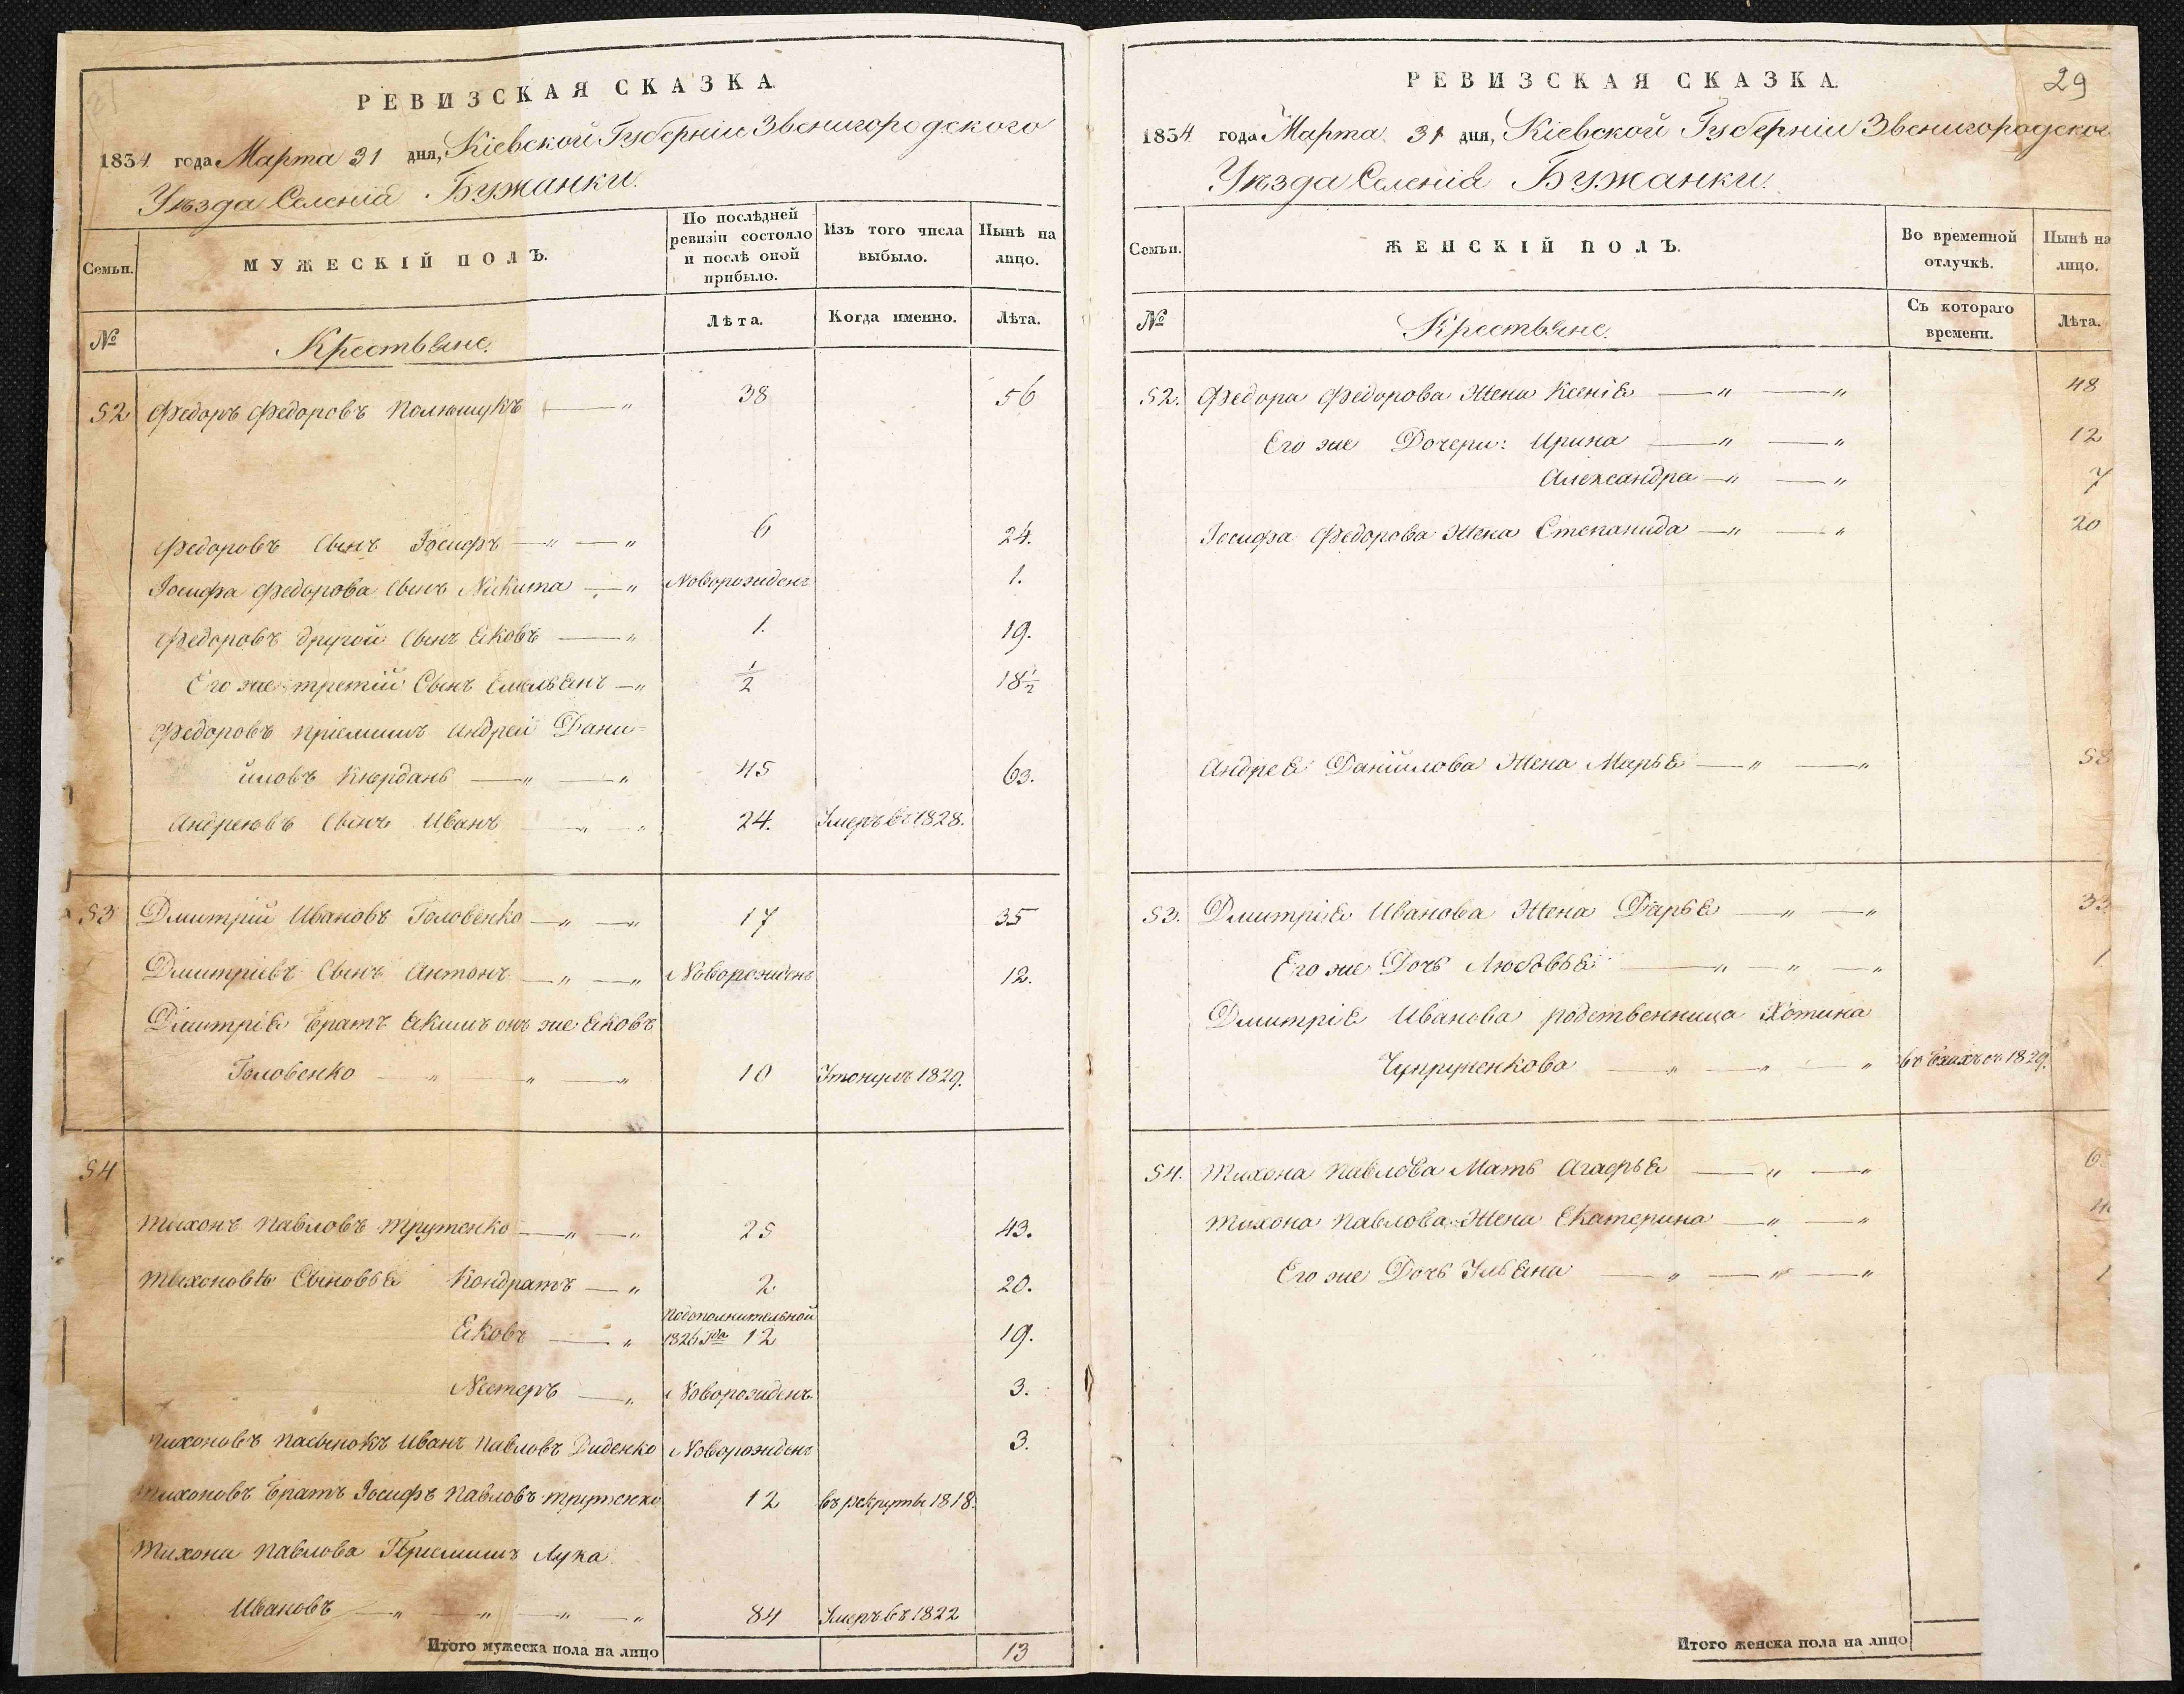 РЕВИЗСКАЯ СКАЗКА
1834 года Марта 31 дня, Кіевской Губерніи Звенигородского
Уѣзда Селенія Бужанки.
Семьи.
МУЖЕСКІЙ ПОЛЪ.
По послѣдней ревизіи состояло и послѣ оной прибыло.
Изъ того числа выбыло.
Нынѣ на лицо.
№
Крестьяне.
Лѣта.
Когда именно.
Лѣта.
52 Федоръ Федоровъ Полющукъ 38 56
Федоровъ Сынъ Іосифъ 6 24.
Іосифа Федорова Сынъ Никита Новорожденъ 1.
Федоровъ другой Сынъ Яковъ 1. 19.
Его же третій Сынъ Емельянъ 1/2 18 1/2
Федоровъ пріемишъ Андрей Дани-
йловъ 45 63.
Андреевъ Сынъ Иванъ 24. Умеръ въ 1828.
53 Дмитрій Ивановъ Головенко 17 35
Дмитріевъ Сынъ Антонъ Новорожденъ 12.
Дмитрія братъ Якимъ онъ же Яковъ
Головенко 10 Утонулъ 1829.
54
Тихонъ Павловъ Трутенко 25 43.
Тихоновы Сыновья Кондратъ 2 20.
Яковъ подополнительной 1826 года 12 19.
Нестеръ Новорожденъ 3.
Тихоновъ пасынокъ Иванъ Павловъ Диденко Новорожденъ 3.
Тихоновъ братъ Іосифъ Павловъ Трутенко 12 въ рекруты 1818.
Тихона Павлова Пріемишъ Лука
Ивановъ 84 Умеръ въ 1822
Итого мужеска пола на лицо 13
29
РЕВИЗСКАЯ СКАЗКА.
1834 года Марта 31 дня, Кіевской Губерніи Звенигородског
Уѣзда Селенія Бужанки.
Семьи.
ЖЕНСКІЙ ПОЛЪ.
Во временной отлучкѣ.
Нынѣ на лицо.
№
Крестьяне.
Съ котораго времени.
Лѣта.
52. Федора Федорова Жена Ксенія 48
Его же Дочери: Ирина 12
Александра 7
Іосифа Федорова Жена Степанида 20
Андрея Данійлова Жена Марья 58
53. Дмитрія Иванова Жена Дарья 33
Его же Дочь Любовья 1
Дмитрія Иванова родственница Хотина
Чупруненкова въ бѣгахъ съ 1829.
54. Тихона Павлова Мать Агафья 6
Тихона Павлова Жена Екатерина
Его же Дочь Ульяна 1
Итого женска пола на лицо